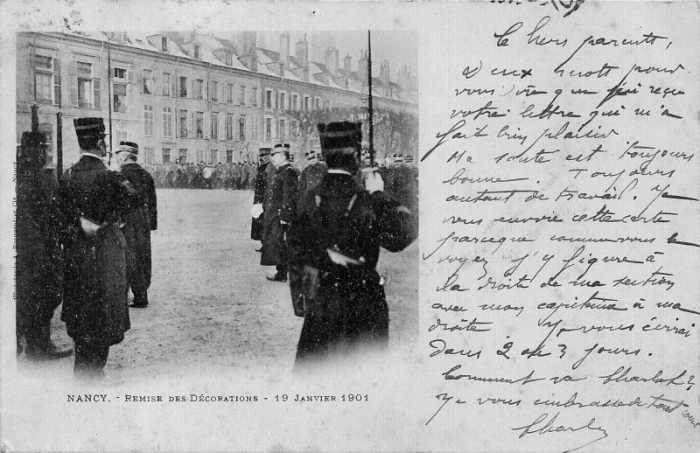 Chers parents,
Deux mots pour
vous dire que j'ai reçu
votre lettre qui m'a
fait bien plaisir
Ma santé est toujours
bonne. Toujours
autant de travail. Je
vous envoie cette carte
parceque comme vous le
voyez j'y figure à
la droite de ma section
avec mon capitaine à ma
droite Je vous écrirai
dans 2 ou 3 jours.
Comment va Charlot?
Je vous embrasse de tout cœur
Charles
NANCY. - REMISE DES DÉCORATIONS - 19 JANVIER 1901